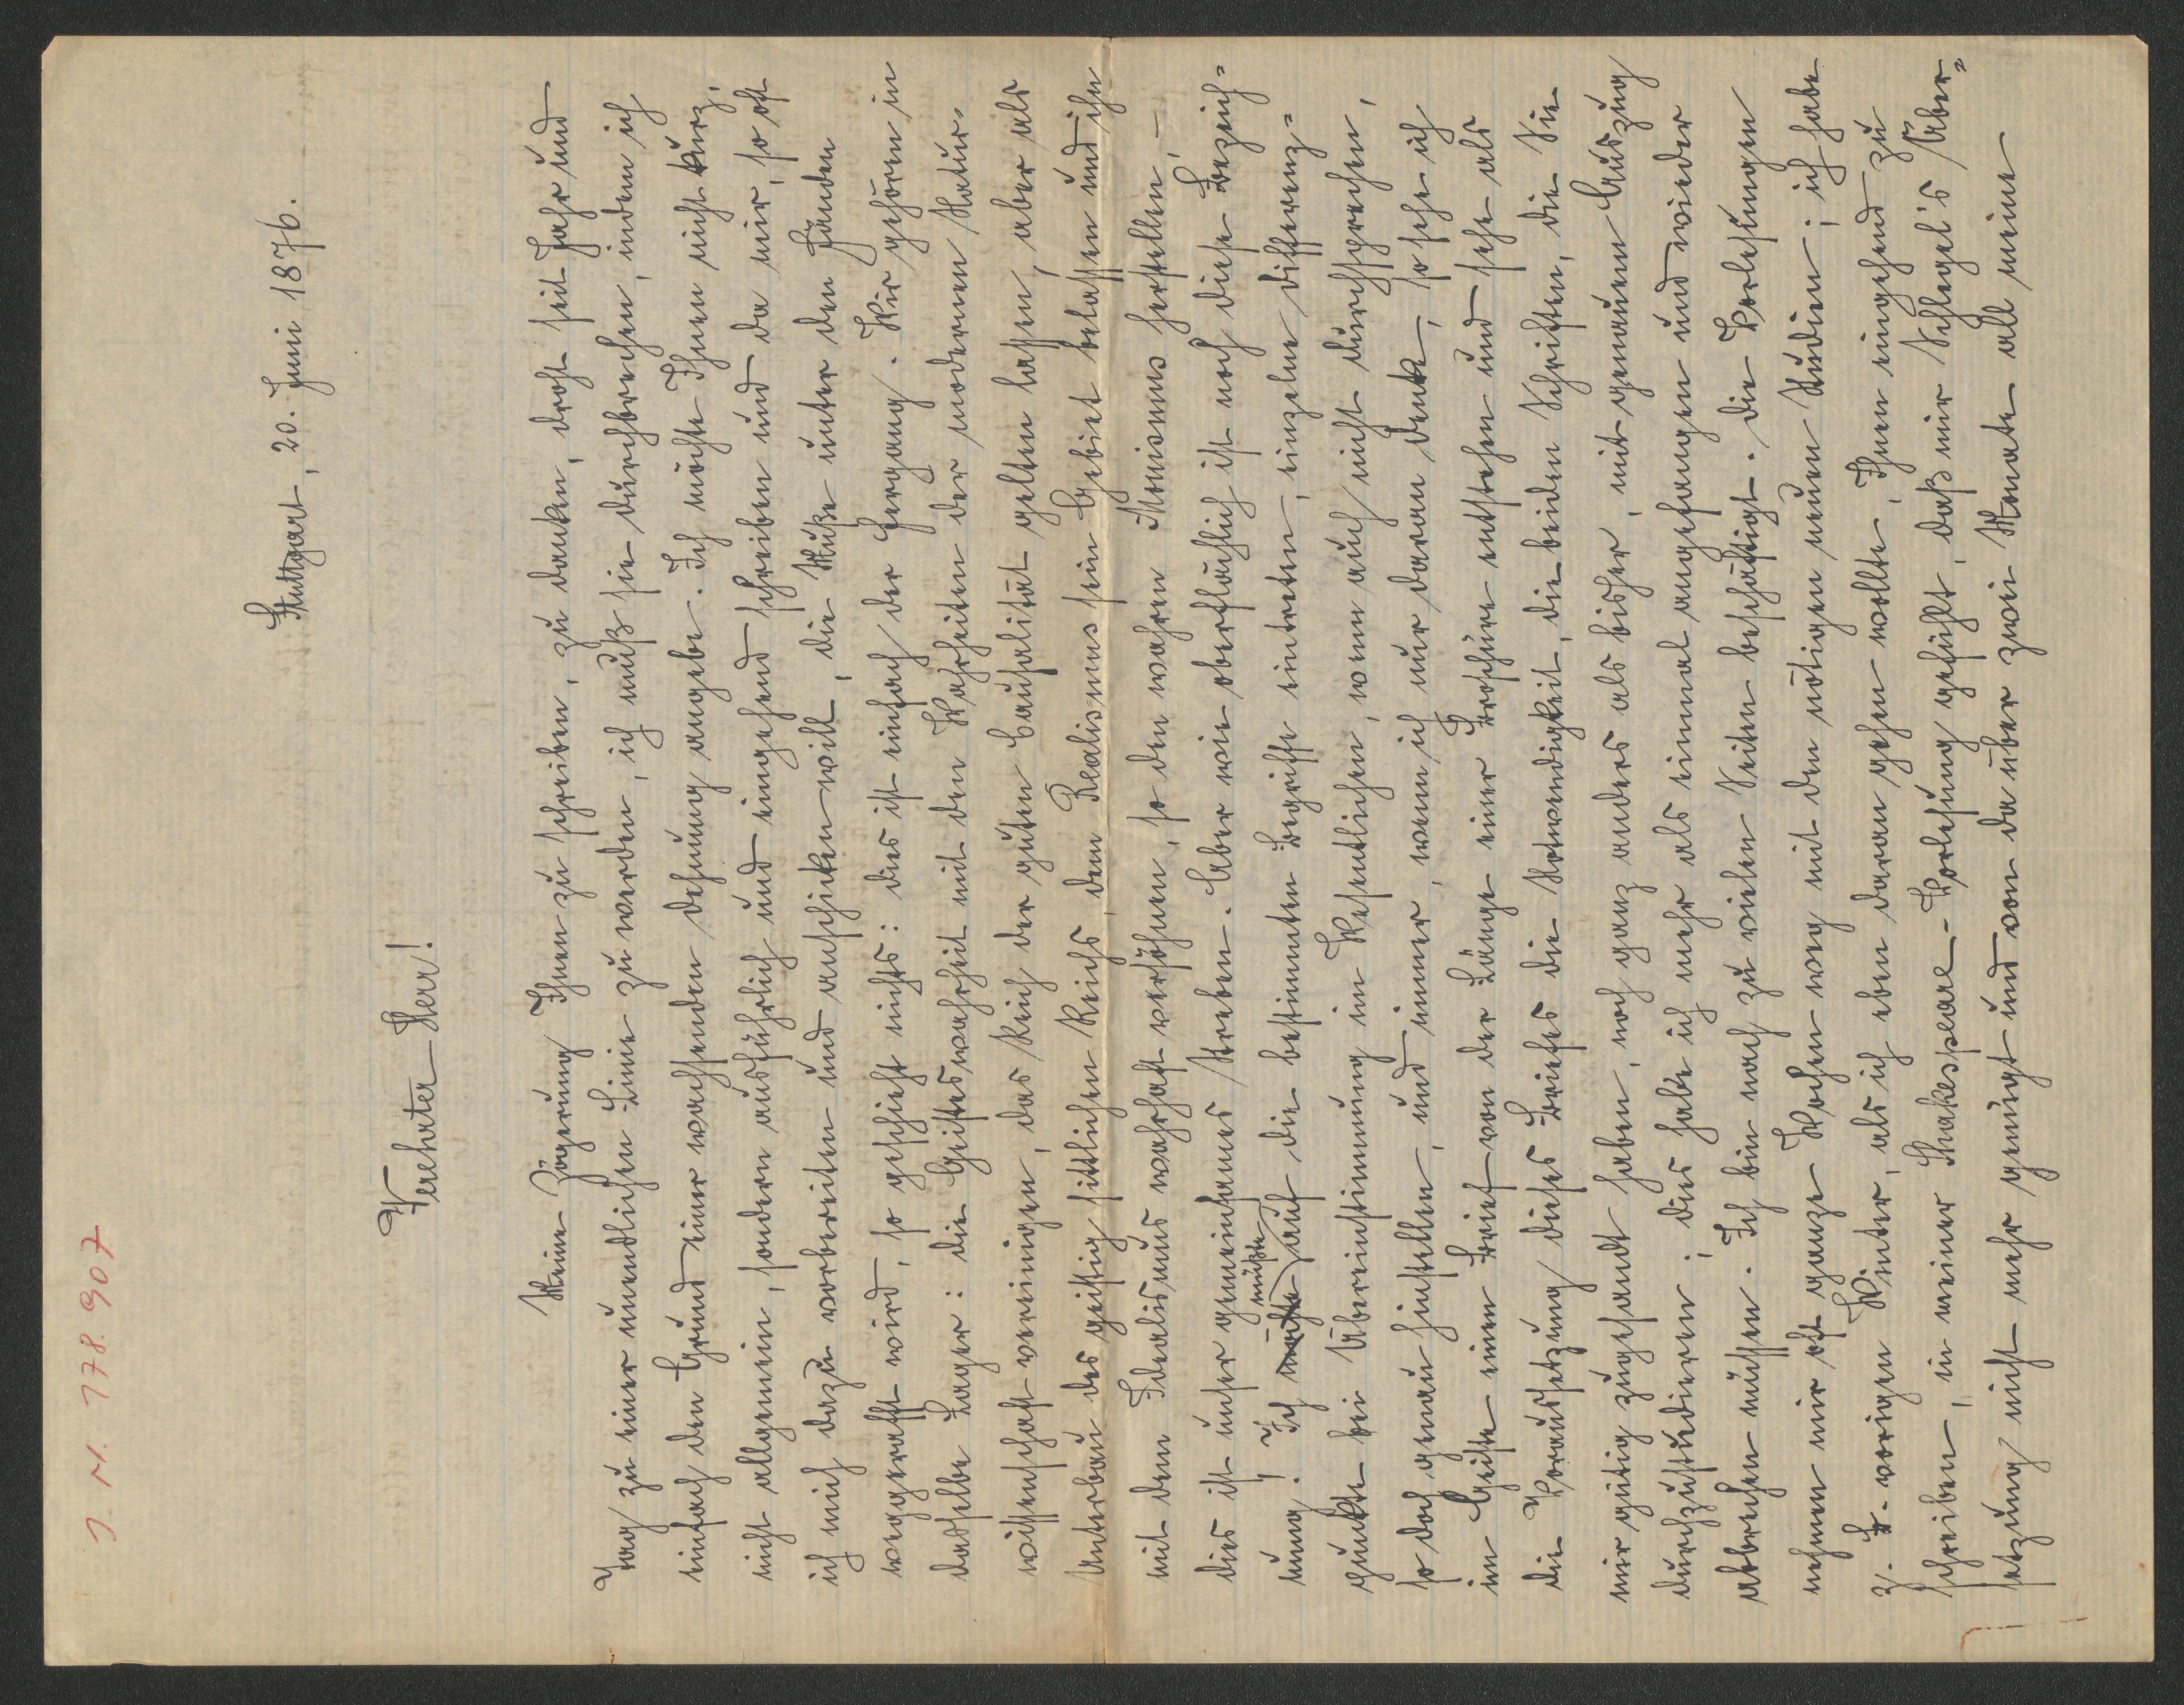 J. N. 178.907
Stuttgart, 20. Juni 1876.
Verehrter Herr!
Meine Zögerung Ihnen zu schreiben, zu danken, droht seit Jahr und
Tag zu einer unendlichen Linie zu werden, ich muß sie durchbrechen, indem ich
einfach den Grund einer wachsenden Dehnung angebe. Ich möchte Ihnen nicht kurz,
nicht allgemein, sondern ausführlich und eingehend schreiben und da mir, so oft
ich mich dazu vorbereiten und anschicken will, die Muße unter den Händen
weggerafft wird, so geschieht nichts: dies ist einfach der Hergang. Wir gehören in
dasselbe Lager: die Geisteswahrheit mit den Wahrheiten der modernen Natur-
wissenschaft vereinigen, das Reich der guten Causalität gelten lassen, aber als
Unterbau des geistig sittlichen Reichs, dem Realismus sein Gebiet belassen und ihn
mit dem Idealismus wahrhaft versöhnen, so den wahren Monismus herstellen, –
dies ist unser gemeinsames Streben. Aber wie oberflächlich ist noch diese Bezeich-
nung! Ich möchte müßte auf die bestimmten Begriffe eintreten, einzelne Differenz-
punkte bei Übereinstimmung im Wesentlichen, wenn auch nicht durchsprechen,
so doch genau hinstellen, und immer, wenn ich nur daran denke, so sehe ich
im Geiste einen Brief von der Länge einer Broschüre entstehen und sehe als
die Voraussetzung dieses Briefes die Notwendigkeit, die beiden Schriften, die Sie
mir gütig zugesandt haben, noch ganz anders als bisher, mit genauem Auszug
durchzustudieren; dies habe ich mehr als einmal angefangen und wieder
abbrechen müssen. Ich bin nach zu vielen Seiten beschäftigt. Die Vorlesungen
nehmen mir oft ganze Wochen weg mit den nötigen neuen Studien; ich habe
z. B. vorigen Winter, als ich eben daran gehen wollte, Ihnen eingehend zu
schreiben, in meiner Shakespeare-Vorlesung gefühlt, daß mir Schlegel's Über-
setzung nicht mehr genügt und von da über zwei Monate all meine